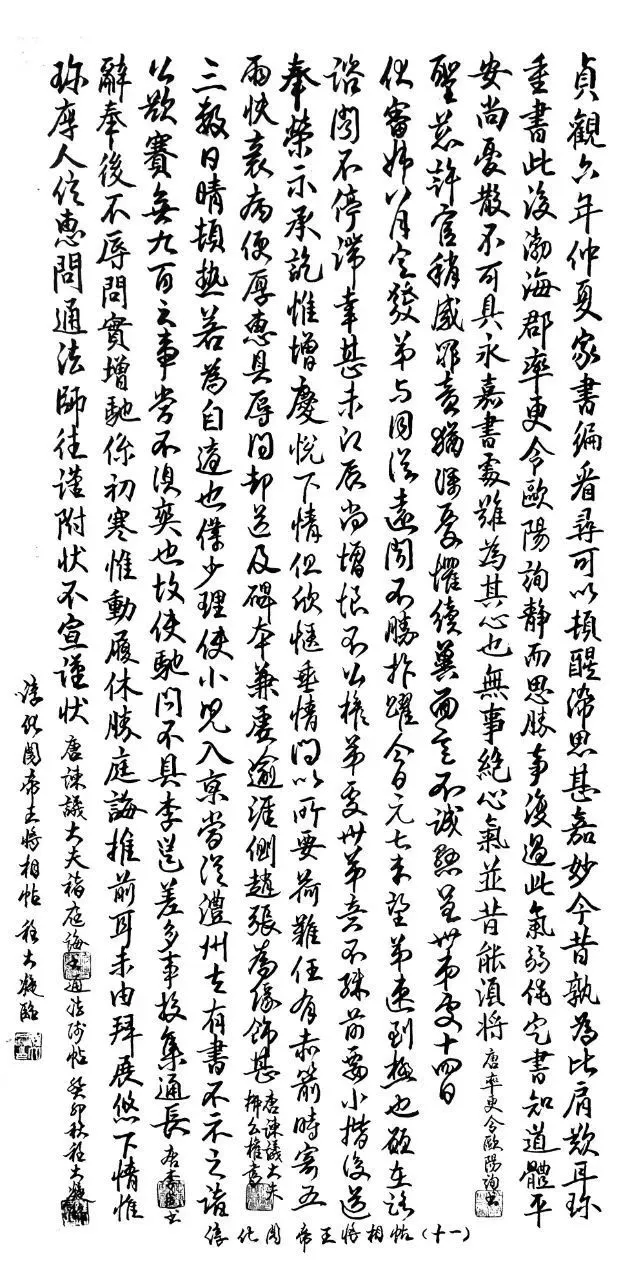 貞觀六年仲夏家書徧看尋可以頓醒滯思甚嘉妙今昔孰為比肩歟耳珍
重書此後渤海郡率更令歐陽詢靜而思勝事復過此氣弱俛定書知道體平
安尚憂散不可具永嘉書處雖為其心也無事絕心氣並昔能須將 唐率更令歐陽詢書
聖慈許官稍減罪責猶深憂懼續冀面言不誠懇至廿弟處十四日
伏審姊八月定發弟與同從遠聞不勝抃躍今日元七未望弟速到極也願在路
諮聞不停滯幸甚未間展尚增恨不公權弟處廿弟意不殊前要小楷後送
奉榮示承訖惟增慶悅下情但欣愜垂情問以所要荷難任有赤箭時寄五
兩快衰病便厚惠具辱問都送及碑本兼屢逾涯側趙張為緣飾甚 唐諫議大夫柳公權書
三數日晴頓熱若為自適也僕少理使小兒入京當從澧州去有書不示之諸
公欲賽無九百之事當不俟奕也故使馳問不具李邕差多事投集通長 唐李邕書
辭奉後不辱問實增馳係初寒惟動履休勝庭誨推前耳未由拜展悠下情惟
珍摩人信惠問通法師往謹附狀不宣謹狀 唐諫議大夫褚庭誨之通法師帖 癸卯秋程大凝臨
淳化閣帝王將相帖 程大凝臨
淳化閣帝王將相帖(十一)